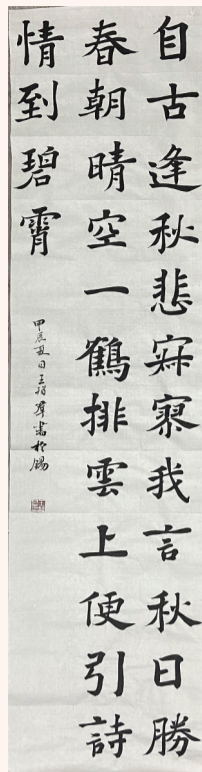 自古逢秋悲寂寥我言秋日勝
春朝晴空一鶴排雲上便引詩
情到碧霄
甲辰夏日王
書於錫